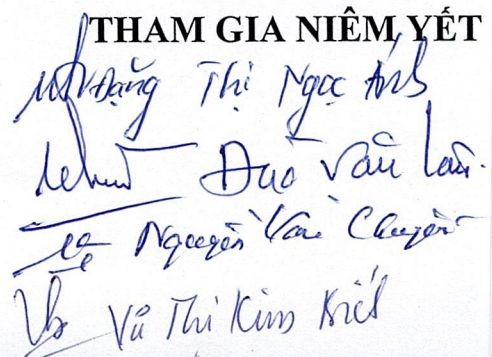 THAM GIA NIÊM YẾT
Đặng Thị Ngọc Ánh
Đào Văn Lâu
Nguyễn Văn Chuyên
Vũ Thị Kim Biết